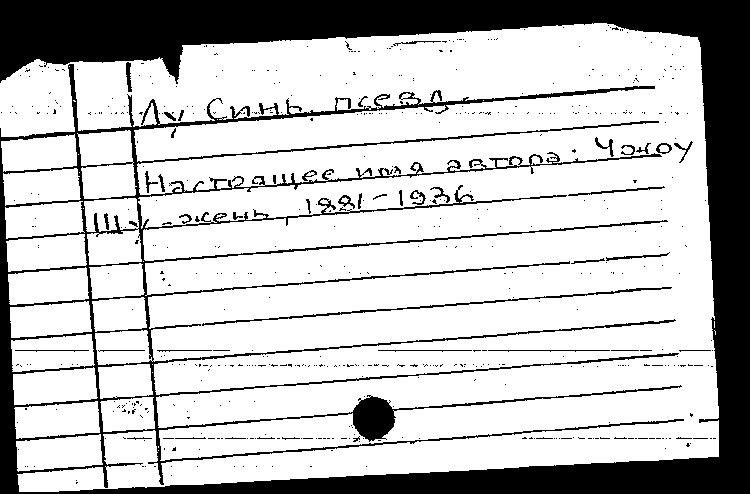 Лу Синь, псевд.
Настоящее имя автора: Чжоу
Шу-жень, 1881-1936